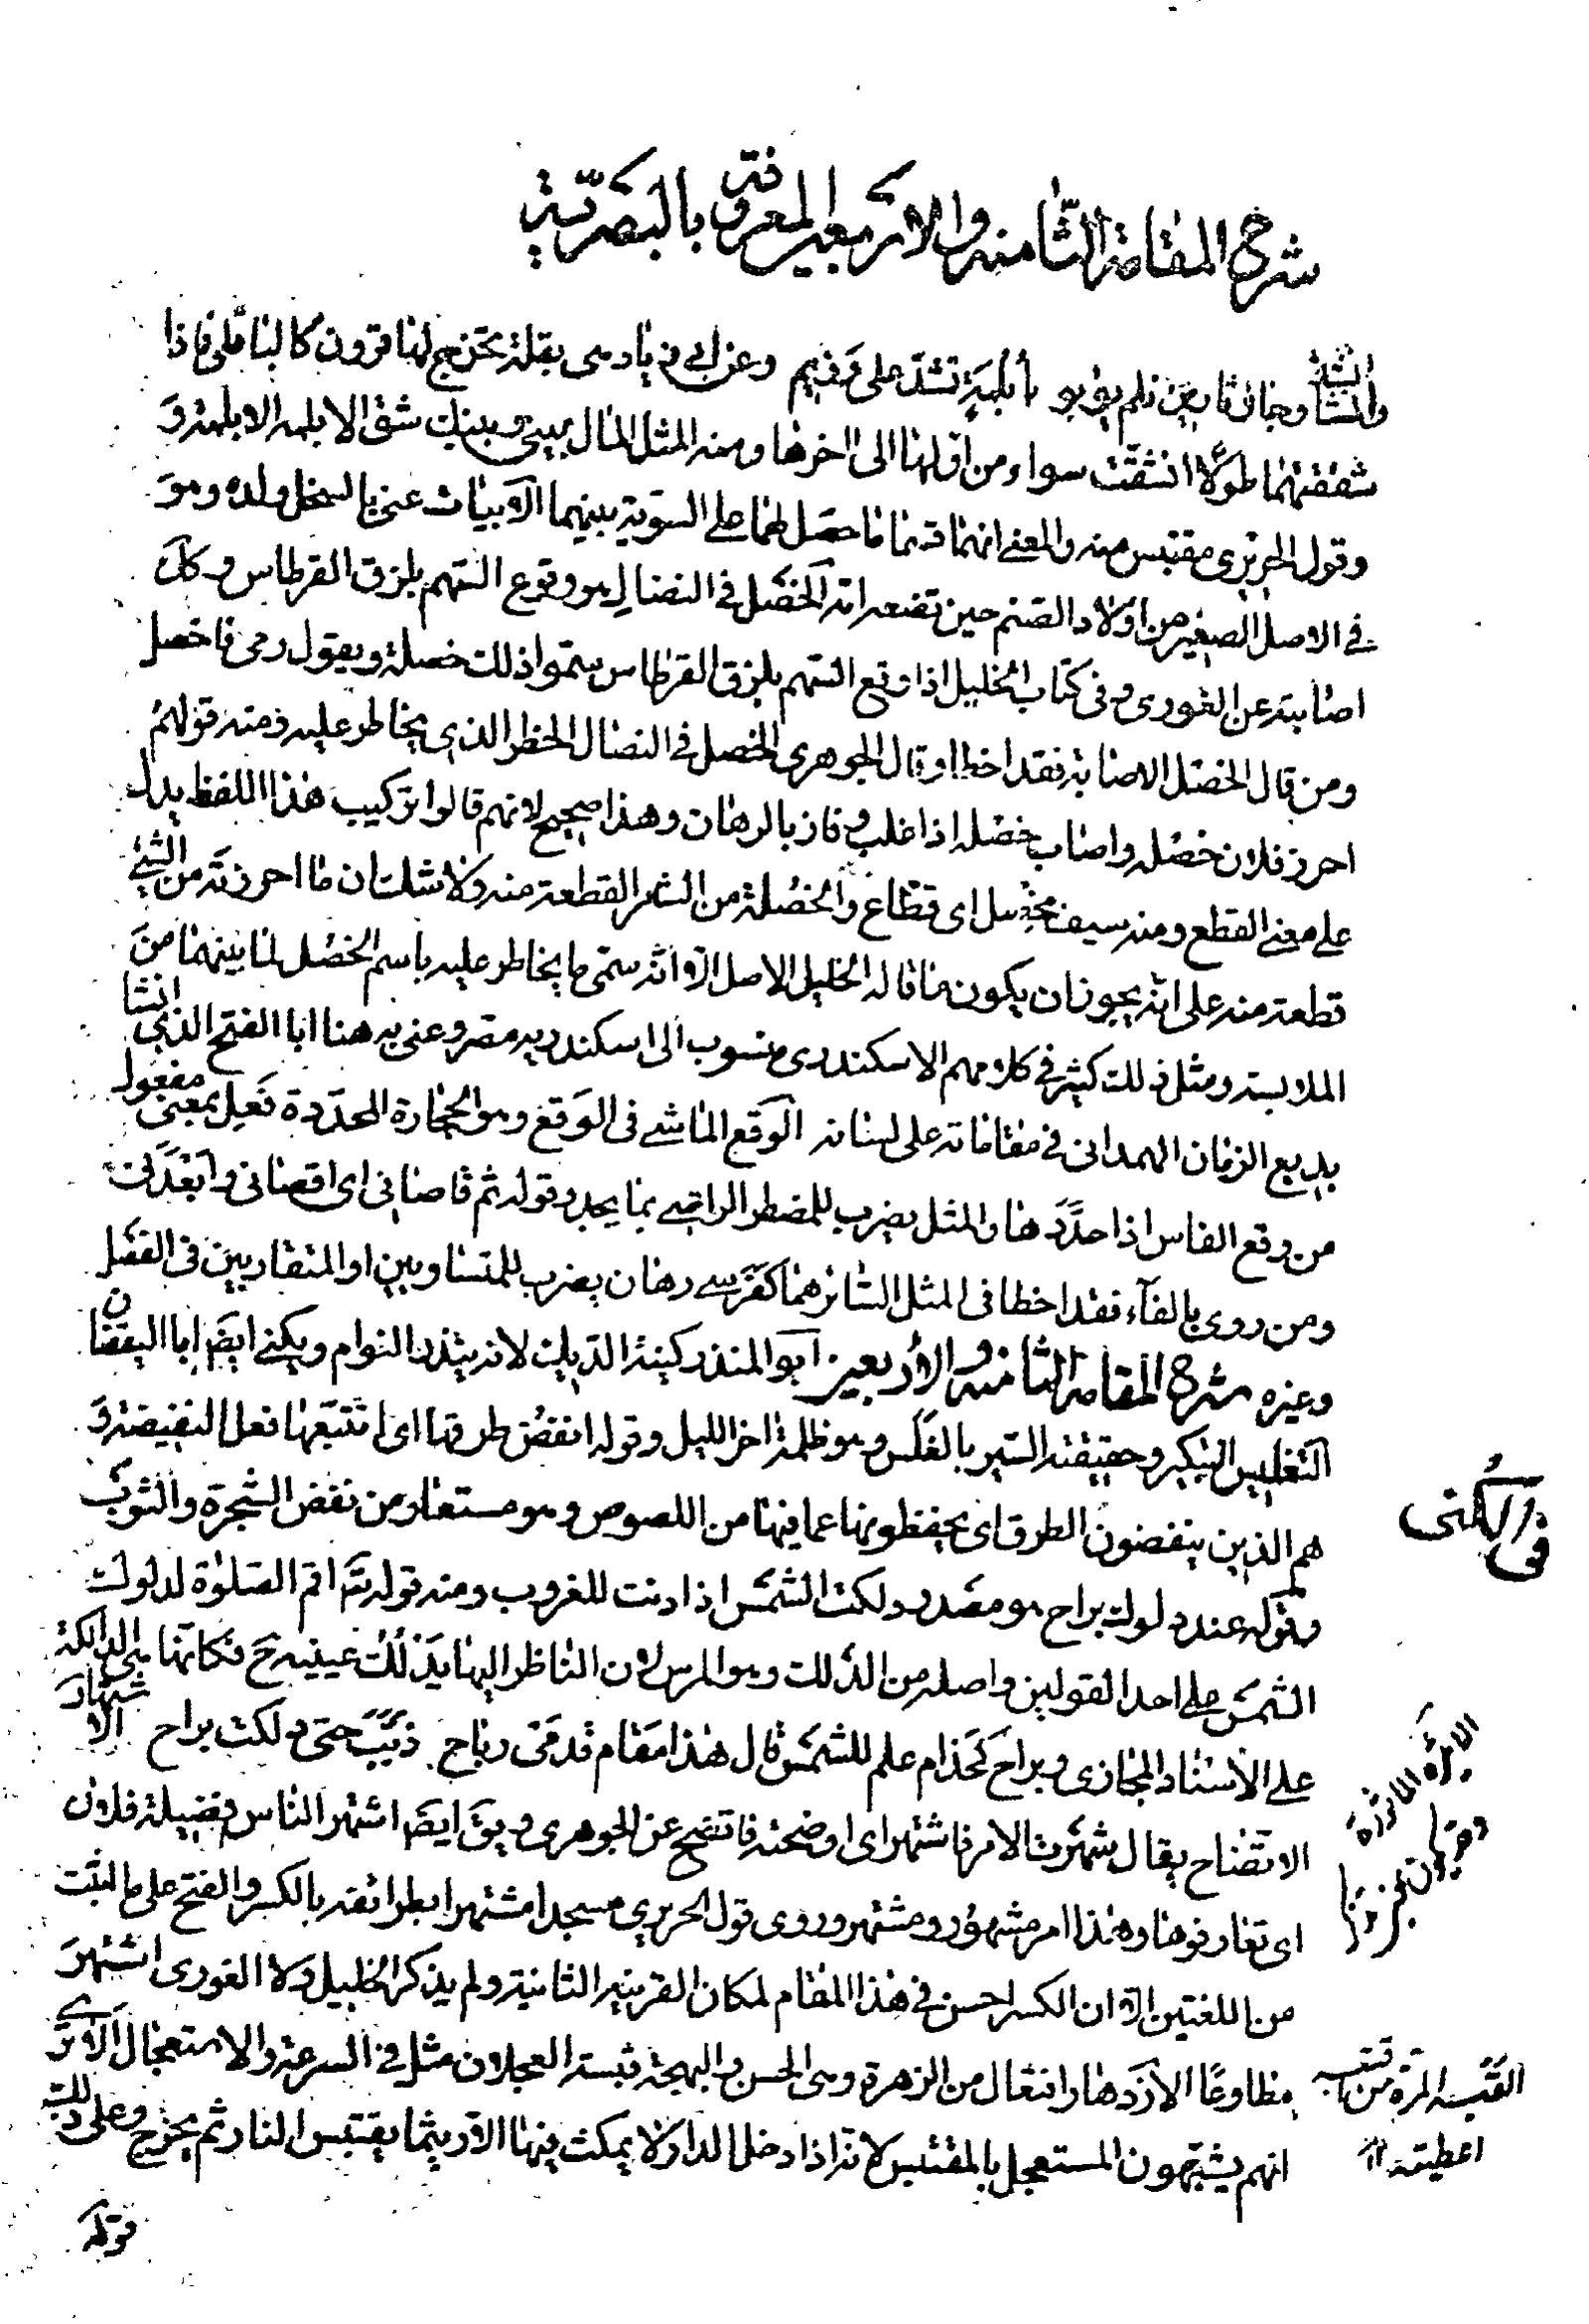 شرح المقامة الثامنة والاربعين المعروفة بالبصرية
والمشاة وجاناقا بين فلم يؤبو بأبلمةٍ تشدّ على وَذيم وعن ابي زياد هى بقلة تخرج لها قرون كالباقلى فاذا
شققتهما طولًا انشقّت سواء من اولها الى اخرها ومنه المثل المال بينى وبينك شق الابلمة الابلمة و
وقول الحريرى مقتبس منه والمعنى انهما قسما ما حصل لهما على السوية بينهما الابيات عنى بالسخل ولده وهو
فى الاصل الصغير من اولاد الضنم حين تضعه امّه الخَصْل فى النضال هو وقوع السّهم بلزق القرطاس وكل
اصابة عن الغورى وفى كتاب الخليل اذا وقع السّهم بلزق القرطاس سمّوا ذلك خصلة ويقول رمى فاخصل
ومن قال الخصل الاصابة فقد اخطا وقال الجوهرى الخصل فى النضال الخطر الذى يخاطر عليه ومنه قولهم
احرز فلان خصله واصاب خصله اذا غلب وفاز بالرهان وهذا صحيح لانهم قالوا تركيب هذا اللفظ يدل
على معنى القطع ومنه سيف مخصل اى قطّاع والخُصلة من الشعر القطعة منه ولا شك ان ما احرزته من الشئ
قطعة منه على انّه يجوز ان يكون ما قاله الخليل الاصل الا انّه سمّى ما يخاطر عليه باسم الخصل لما بينهما من
الملابسة ومثل ذلك كثير فى كلامهم الاسكندرى منسوب الى اسكندرية مصر وعنى به هنا ابا الفتح الذى انشا
بديع الزمان الهمدانى فى مقاماته على لسانه الوقع الماشى فى الوَقع وهو الحجارة المحدّدة فَعِل بمعنى مفعول
من وقع الفاس اذا حدَّدها والمثل يضرب للمضطر الراضى بما يجد وقوله ثم قاصانى اى اقصانى وابعَدنى
ومن روى بالفآء فقد اخطا فى المثل السّائر هما كفرسى رهان يضرب للمتساويين او المتقاربين فى الفضل
وغيره شرح المقامة الثامنة والأربعين ابو المنذر كنية الديك لانه ينذر النوام ويكنى ايضا ابا اليقظان
التغليس التبكير وحقيقته السّير بالغلس وهو ظلمة اخر الليل وقوله انفضُ طرقها اى اتتبّعها فعل النفيضة و
هم الذين ينفضون الطرق اى يحفظونها عما فيها من اللصوص وهو مستعار من نفض الشجرة والثوب
وقوله عند دلوك براح هو مصدر دلكت الشّمس اذا دنت للغروب ومنه قوله تع اقم الصلوة لدلوك
الشّمس على احد القولين واصله من الدّلك وهو المرس لان النّاظر اليها يَدْلُك عينيه ح فكانّها هى الدالكة
على الأسناد المجازى وبراح كحَذام علم للشمس قال هذا مقام قدمَى رباح ذَبَّبَ حتى دلكت براح الاشتهار
الاتضاح يقال شهرت الامر فاشتهر اى اوضحته فاتضح عن الجوهرى ويق ايضا اشتهر الناس فضيلة فلان
اى تعارفوها وهذا امر مشهور ومشتهر وروى قول الحريرى مسجدا مشتهرا بطرائفه بالكسر والفتح على ما اثبت
من اللغتين الا ان الكسر احسن فى هذا المقام لمكان القرينة الثانية ولم يذكر الخليل ولا الغورى اشتهر
مطاوعًا الأزدهار افتعال من الزهرة وهى الحسن والبهجة قبسة العجلان مثل فى السرعة والاستعجال الا ترى
انهم يشبّهون المستعجل بالمقتبس لانّه اذا دخل الدار لا يمكث فيها الا ريثما يقتبس النار ثم يخرج وعلى ذلك
قوله
فى الكنى
القَبْسة المرة من قبسه
اعطيته